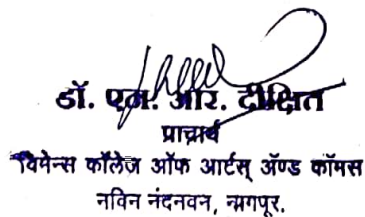 डॉ. एल. आर. दीक्षित
प्राचार्य
विमेन्स कॉलेज ऑफ आर्टस् ॲण्ड कॉमस
नविन नंदनवन, नागपूर.